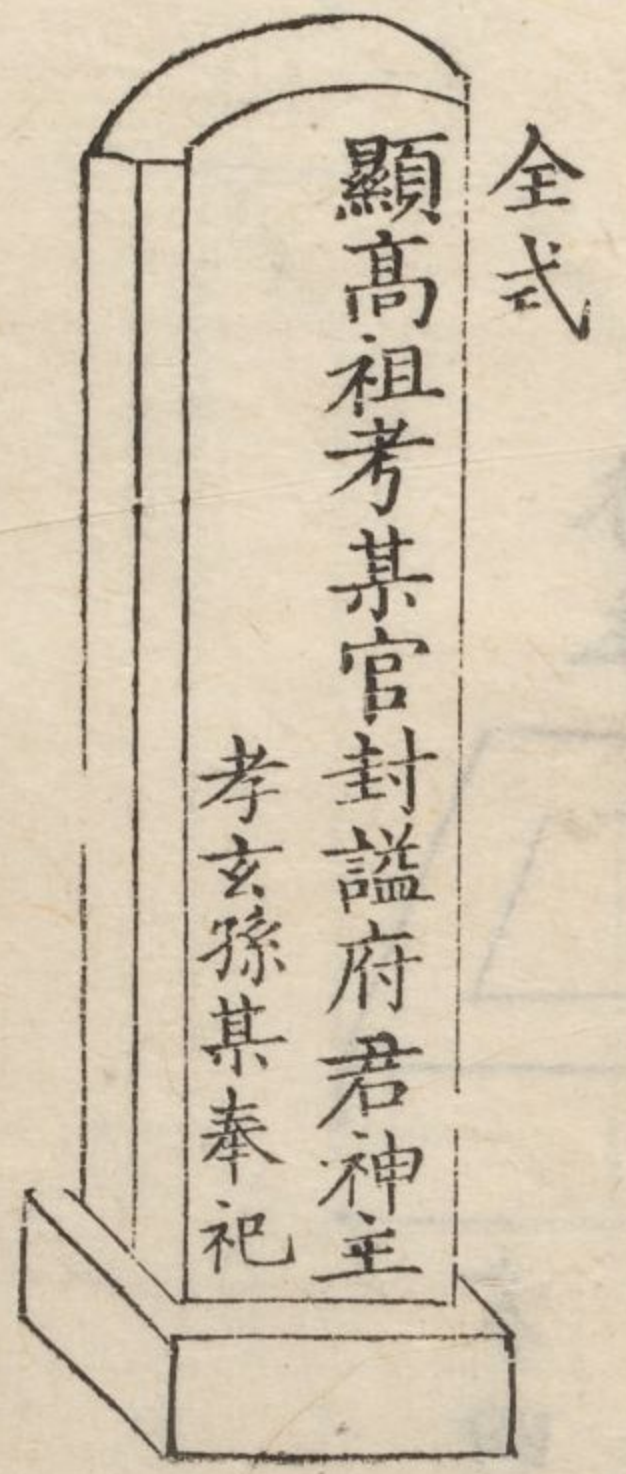 全式
顯高祖考某官封謚府君神主
孝玄孫某奉祀